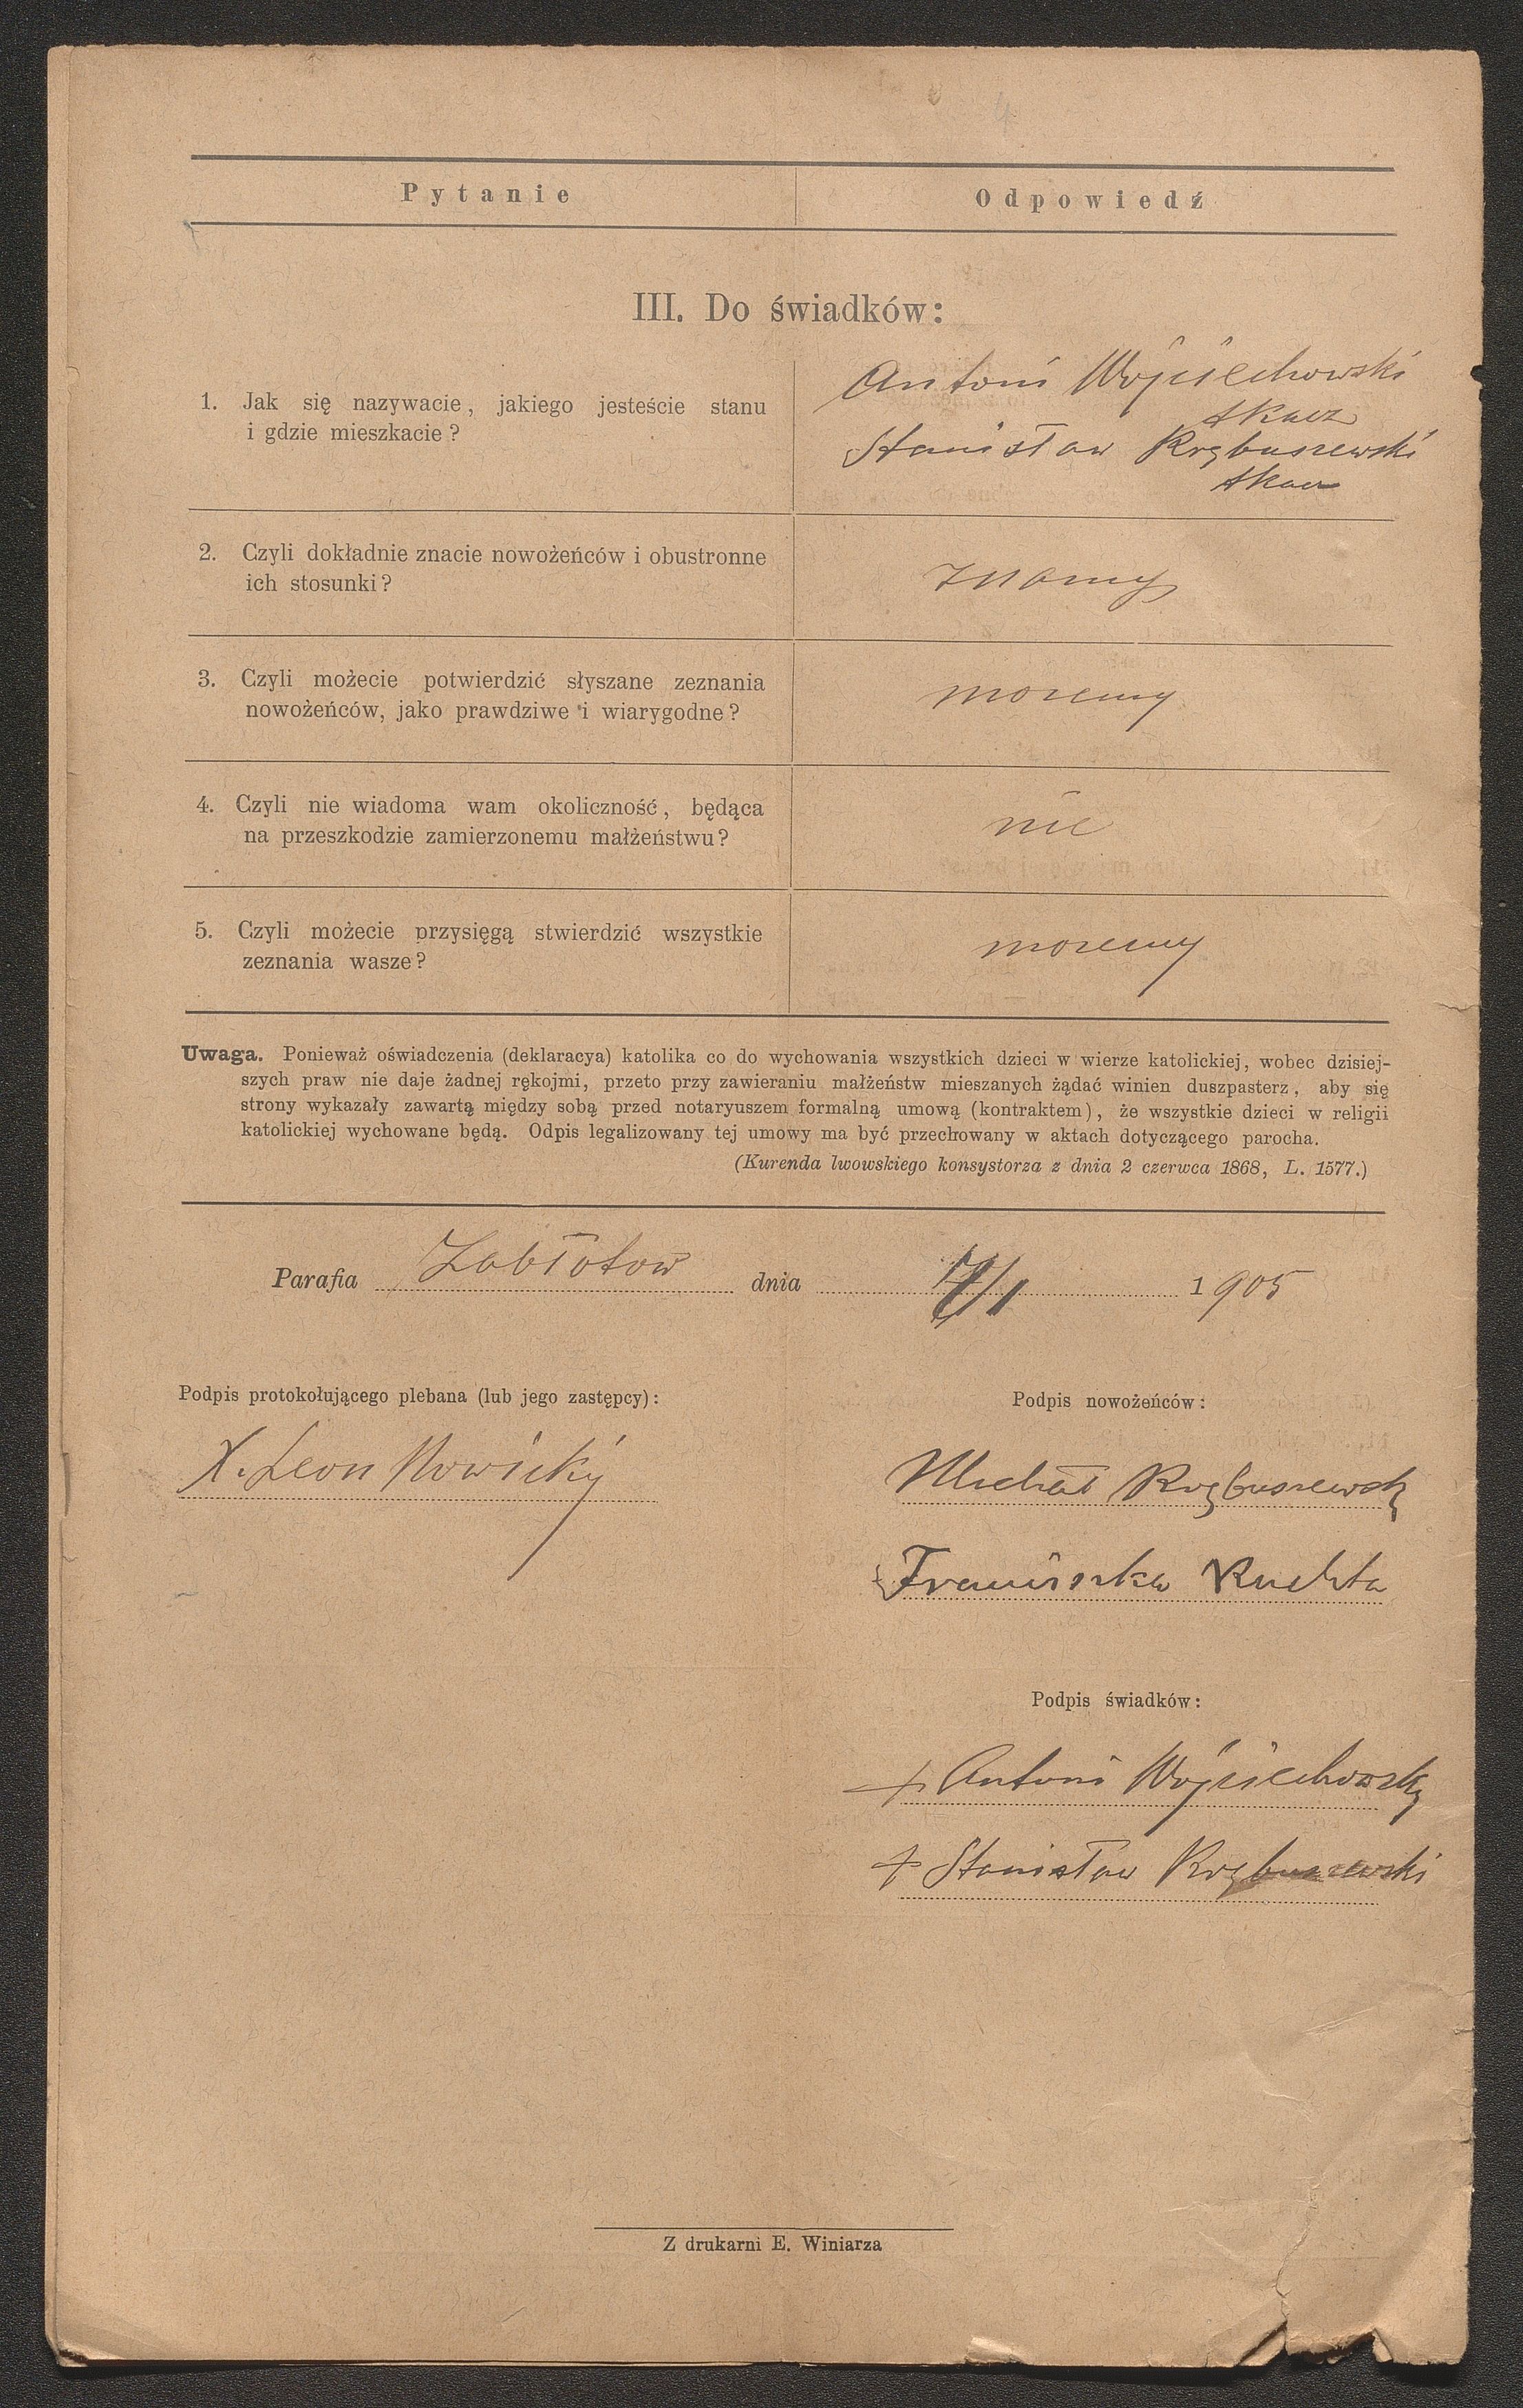 Pytanie
Odpowiedź
III. Do świadków:
1. Jak się nazywacie, jakiego jesteście stanu
i gdzie mieszkacie?
Antoni Wójciechowski
tkacz
Stanisław Krębuszewski
tkacz
2. Czyli dokładnie znacie nowożeńców i obustronne
ich stosunki?
znamy
3. Czyli możecie potwierdzić słyszane zeznania
nowożeńców, jako prawdziwe i wiarygodne?
mozemy
4. Czyli nie wiadoma wam okoliczność, będąca
na przeszkodzie zamierzonemu małżeństwu?
nie
5. Czyli możecie przysięgą stwierdzić wszystkie
zeznania wasze?
mozemy
Uwaga. Ponieważ oświadczenia (deklaracya) katolika co do wychowania wszystkich dzieci w wierze katolickiej, wobec dzisiej-
szych praw nie daje żadnej rękojmi, przeto przy zawieraniu małżeństw mieszanych żądać winien duszpasterz, aby się
strony wykazały zawartą między sobą przed notaryuszem formalną umową (kontraktem), że wszystkie dzieci w religii
katolickiej wychowane będą. Odpis legalizowany tej umowy ma być przechowany w aktach dotyczącego parocha.
(Kurenda lwowskiego konsystorza z dnia 2 czerwca 1868, L. 1577.)
Parafia Zabłotow dnia 1905
Podpis protokołującego plebana (lub jego zastępcy):
Podpis nowożeńców:
X. Leon Nowicky
Michał Krębuszewski
Franciszka Kuchta
Podpis świadków:
+ Antoni Wójciechowski
+ Stanisław Krębuszewski
Z drukarni E. Winiarza